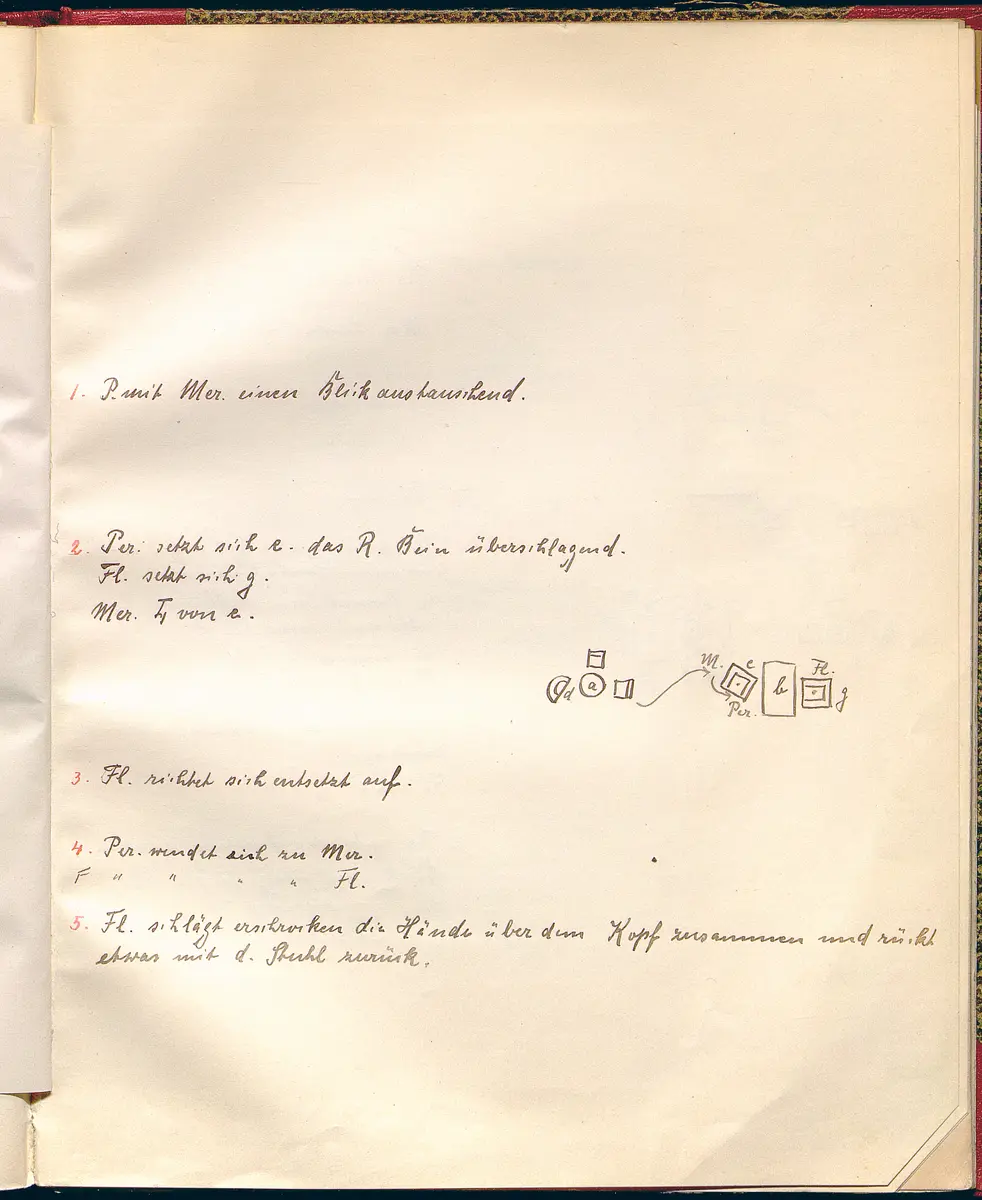 1. P. mit Mer. einen Blick austauschend.
2. Per. setzt sich e. das R. Bein überschlagend.
Fl. setzt sich g.
Mer. von e.
M. e Fl.
d a b g
Per.
3. Fl. richtet sich entsetzt auf.
4. Per. wendet sich zu Mer.
F " " " " Fl.
5. Fl. schlägt erschrocken die Hände über dem Kopf zusammen und rückt
etwas mit d. Stuhl zurück.